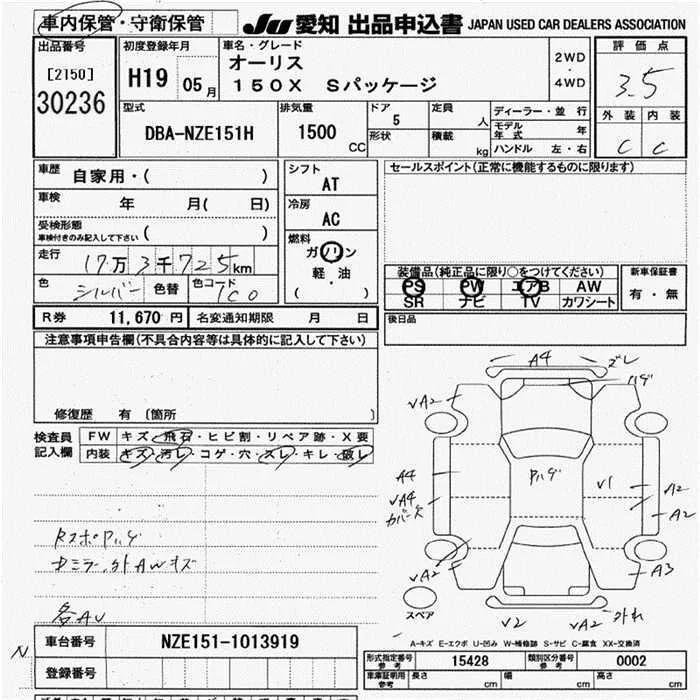 車内保管・守衛保管
JU 愛知 出品申込書 JAPAN USED CAR DEALERS ASSOCIATION
出品番号
[2150]
30236
初度登録年月
H19 05月
車名・グレード
オーリス
150X Sパッケージ
2WD
・
4WD
評価点
3.5
外装 内装
C C
型式
DBA-NZE151H
排気量
1500
CC
ドア
5
形状
定員
人
積載
kg
ディーラー・並行
モデル年式 年
ハンドル 左・右
車歴
自家用・( )
車検
年 月( 日)
受検形態
車検付きのみ記入して下さい ( )
走行
17万3千725km
色 シルバー 色替 色コード 1C0
シフト
AT
冷房
AC
燃料
ガソリン
軽・油
( )
セールスポイント(正常に機能するものに限ります)
装備品(純正品に限り○をつけてください)
PS PW エアB AW
SR ナビ TV カワシート
新車保証書
有・無
R券 11,670円 名変通知期限 月 日
後日品
注意事項申告欄(不具合内容等は具体的に記入して下さい)
修復歴 有 〔箇所 〕
検査員
記入欄
FW キズ・飛石・ヒビ割・リペア跡・X要
内装 キズ・汚レ・コゲ・穴・スレ・キレ・破レ
Rスポハゲ
ミラー外AWキズ
各AU
A4
ズレ
ハゲ
√A2
A4
√A4
ハゲ
√1
A2
A2
√A2
A3
スペア
√2
√A2
外れ
A-キズ E-エクボ U-凹み W-補修跡 S-サビ C-腐食 XX-交換済
N
車台番号 NZE151-1013919
登録番号
形式指定番号
参考
15428
類別区分番号
参考
0002
車庫証明用
参考
長さ cm 幅 cm 高さ cm